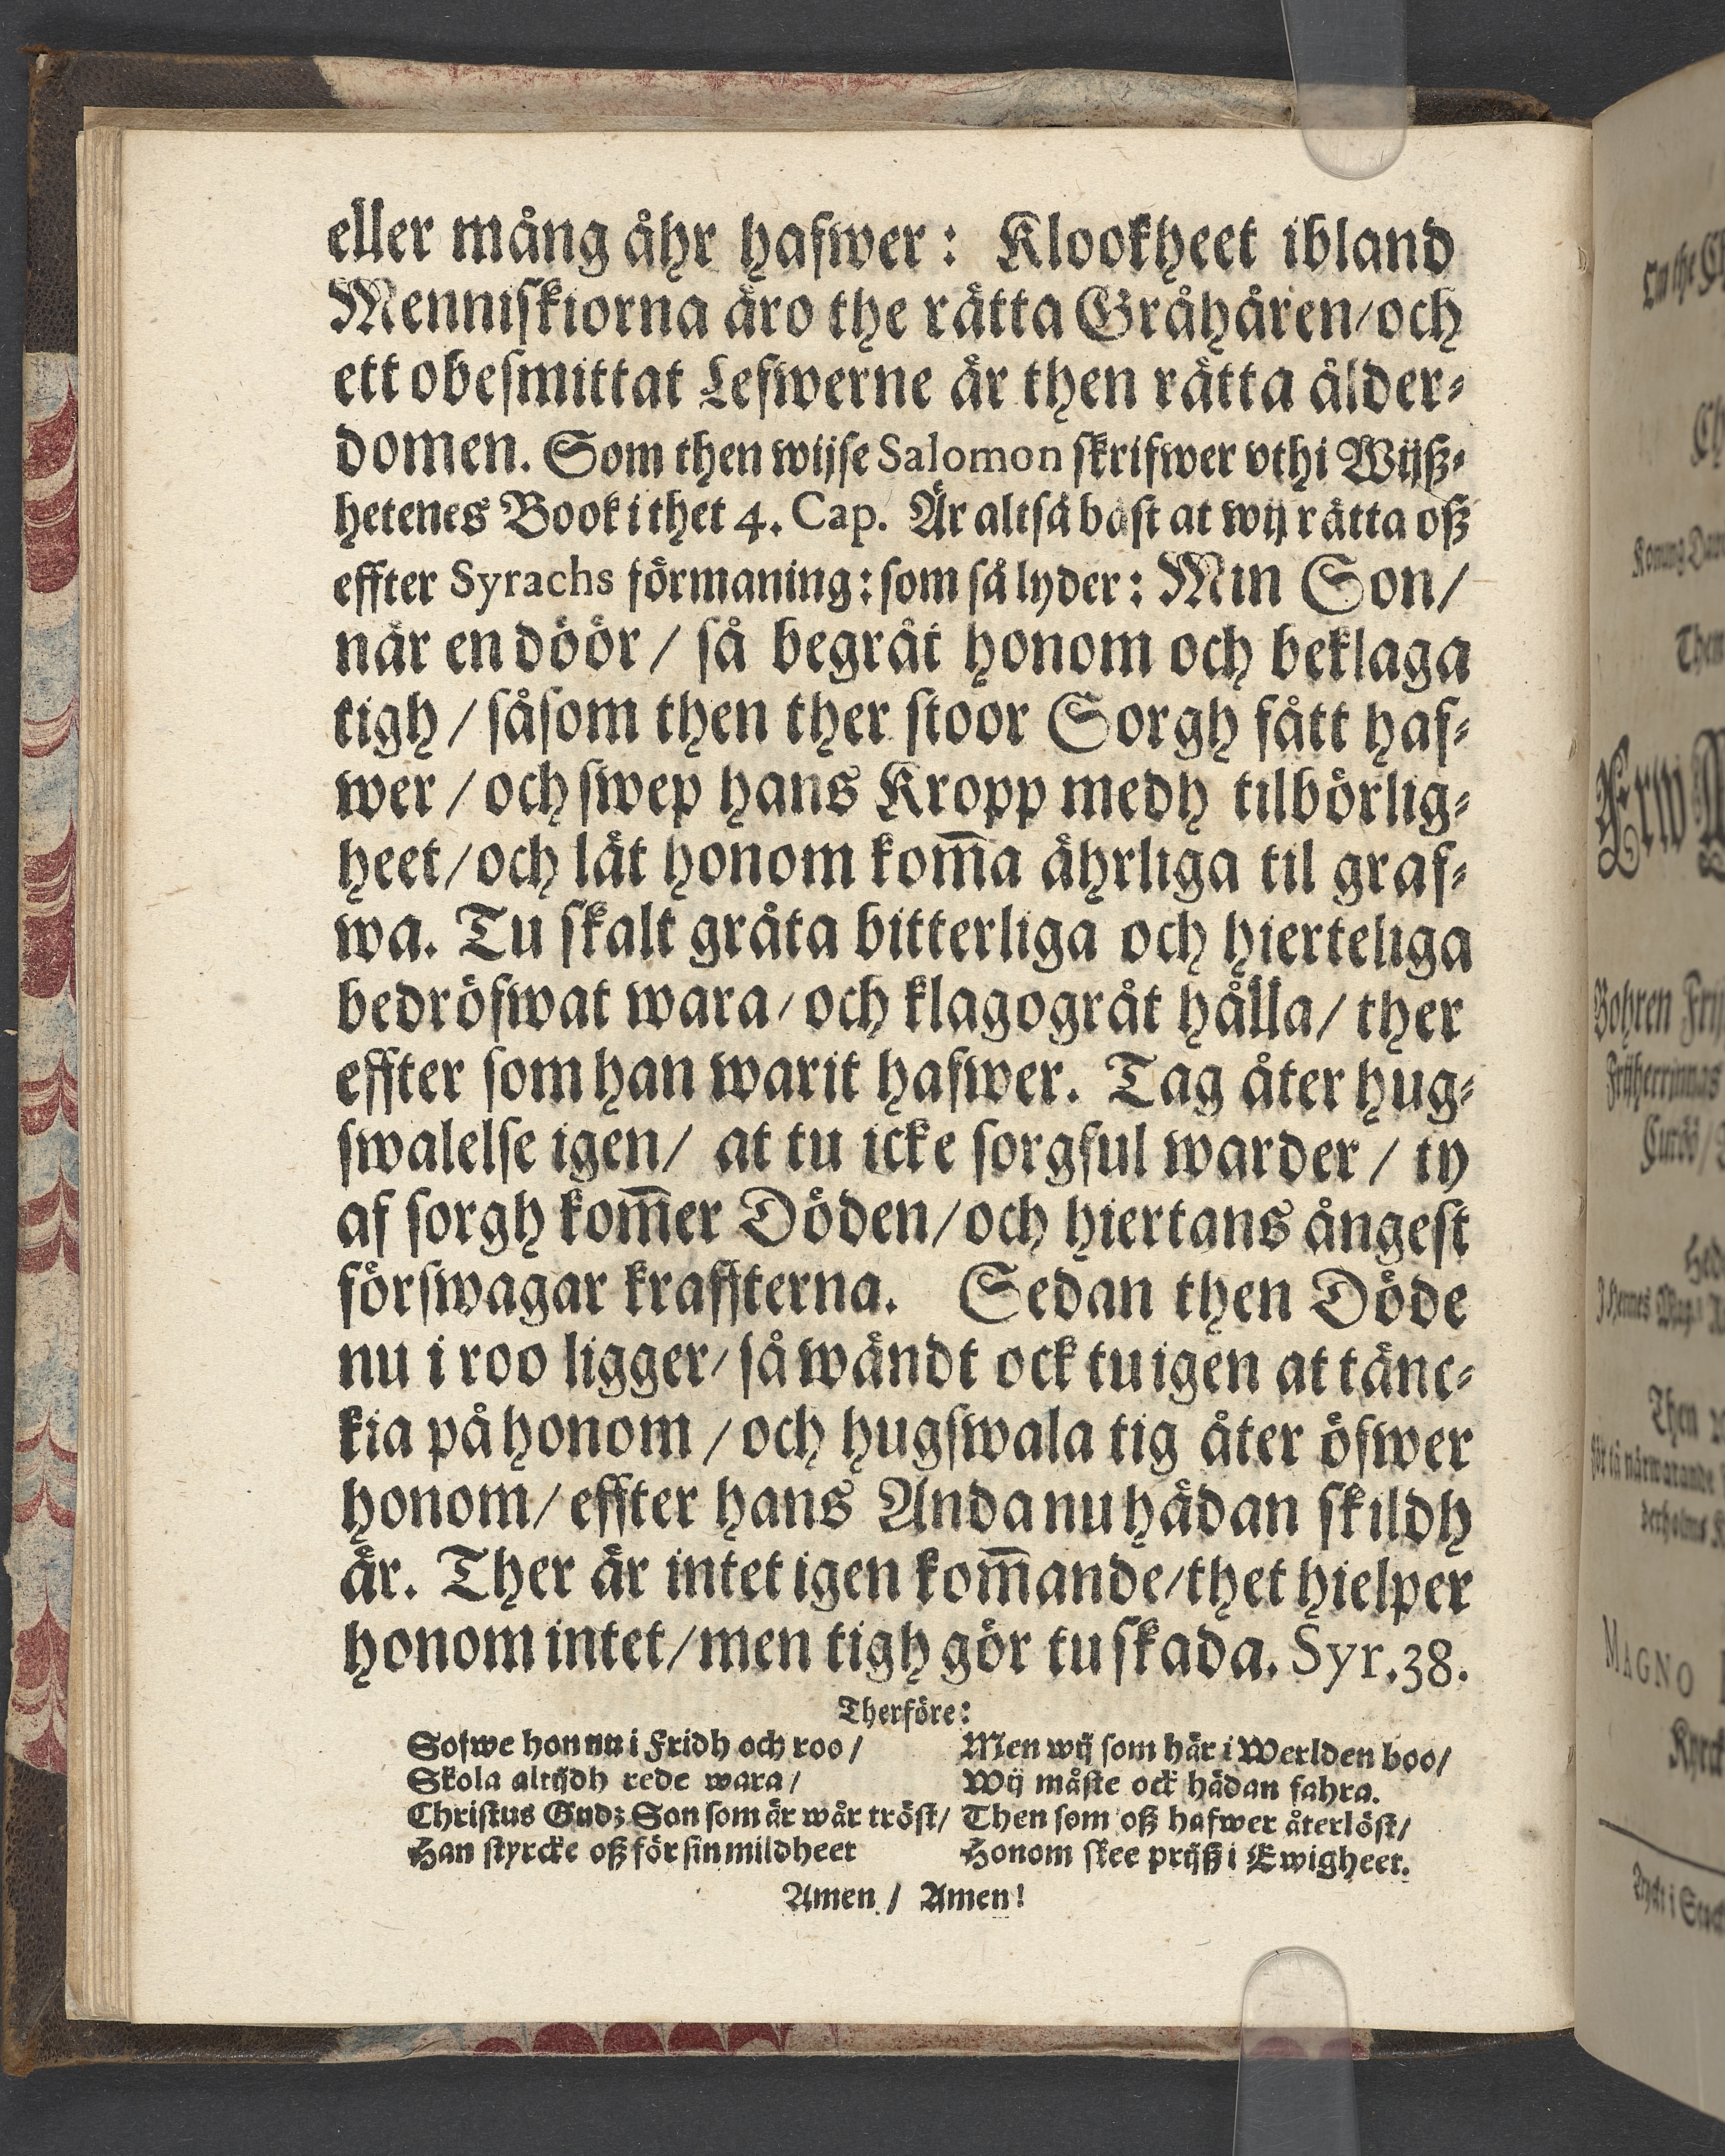 eller mång åhr hafwer: Klookheet ibland
Menniskiorna äro the rätta Gråhåren/och
ett obesmittat Lefwerne är then rätta ålder-
domen. Som then wijse Salomon skrifwer vthi Wijß-
hetenes Book i thet 4. Cap. Är altså bäst at wij rätta oß
effter Syrachs förmaning: som så lyder: Min Son/
när en döör/ så begråt honom och beklaga
tigh/ såsom then ther stoor Sorgh fått haf-
wer/ och swep hans Kropp medh tilbörlig-
heet/och låt honom kom̅a åhrliga til graf-
wa. Tu skalt gråta bitterliga och hierteliga
bedröfwat wara/och klagogråt hålla/ ther
effter som han warit hafwer. Tag åter hug-
swalelse igen/ at tu icke sorgful warder/ ty
af sorgh kom̅er Döden/och hiertans ångest
förswagar kraffterna. Sedan then Döde
nu i roo ligger/ så wändt ock tu igen at tänc-
kia på honom/och hugswala tig åter öfwer
honom/effter hans Anda nu hådan skildh
är. Ther är intet igen kom̅ande/thet hielper
honom intet/men tigh gör tu skada. Syr.38.
Therföre:
Sofwe hon nu i Fridh och roo/ Men wij som här i Werlden boo/
Skola altijdh rede wara/ Wij måste ock hädan fahra.
Christus Gudz Son som är wår tröst/ Then som oß hafwer återlöst/
Han styrcke oß för sin mildheet Honom skee prijß i Ewigheet.
Amen/ Amen!